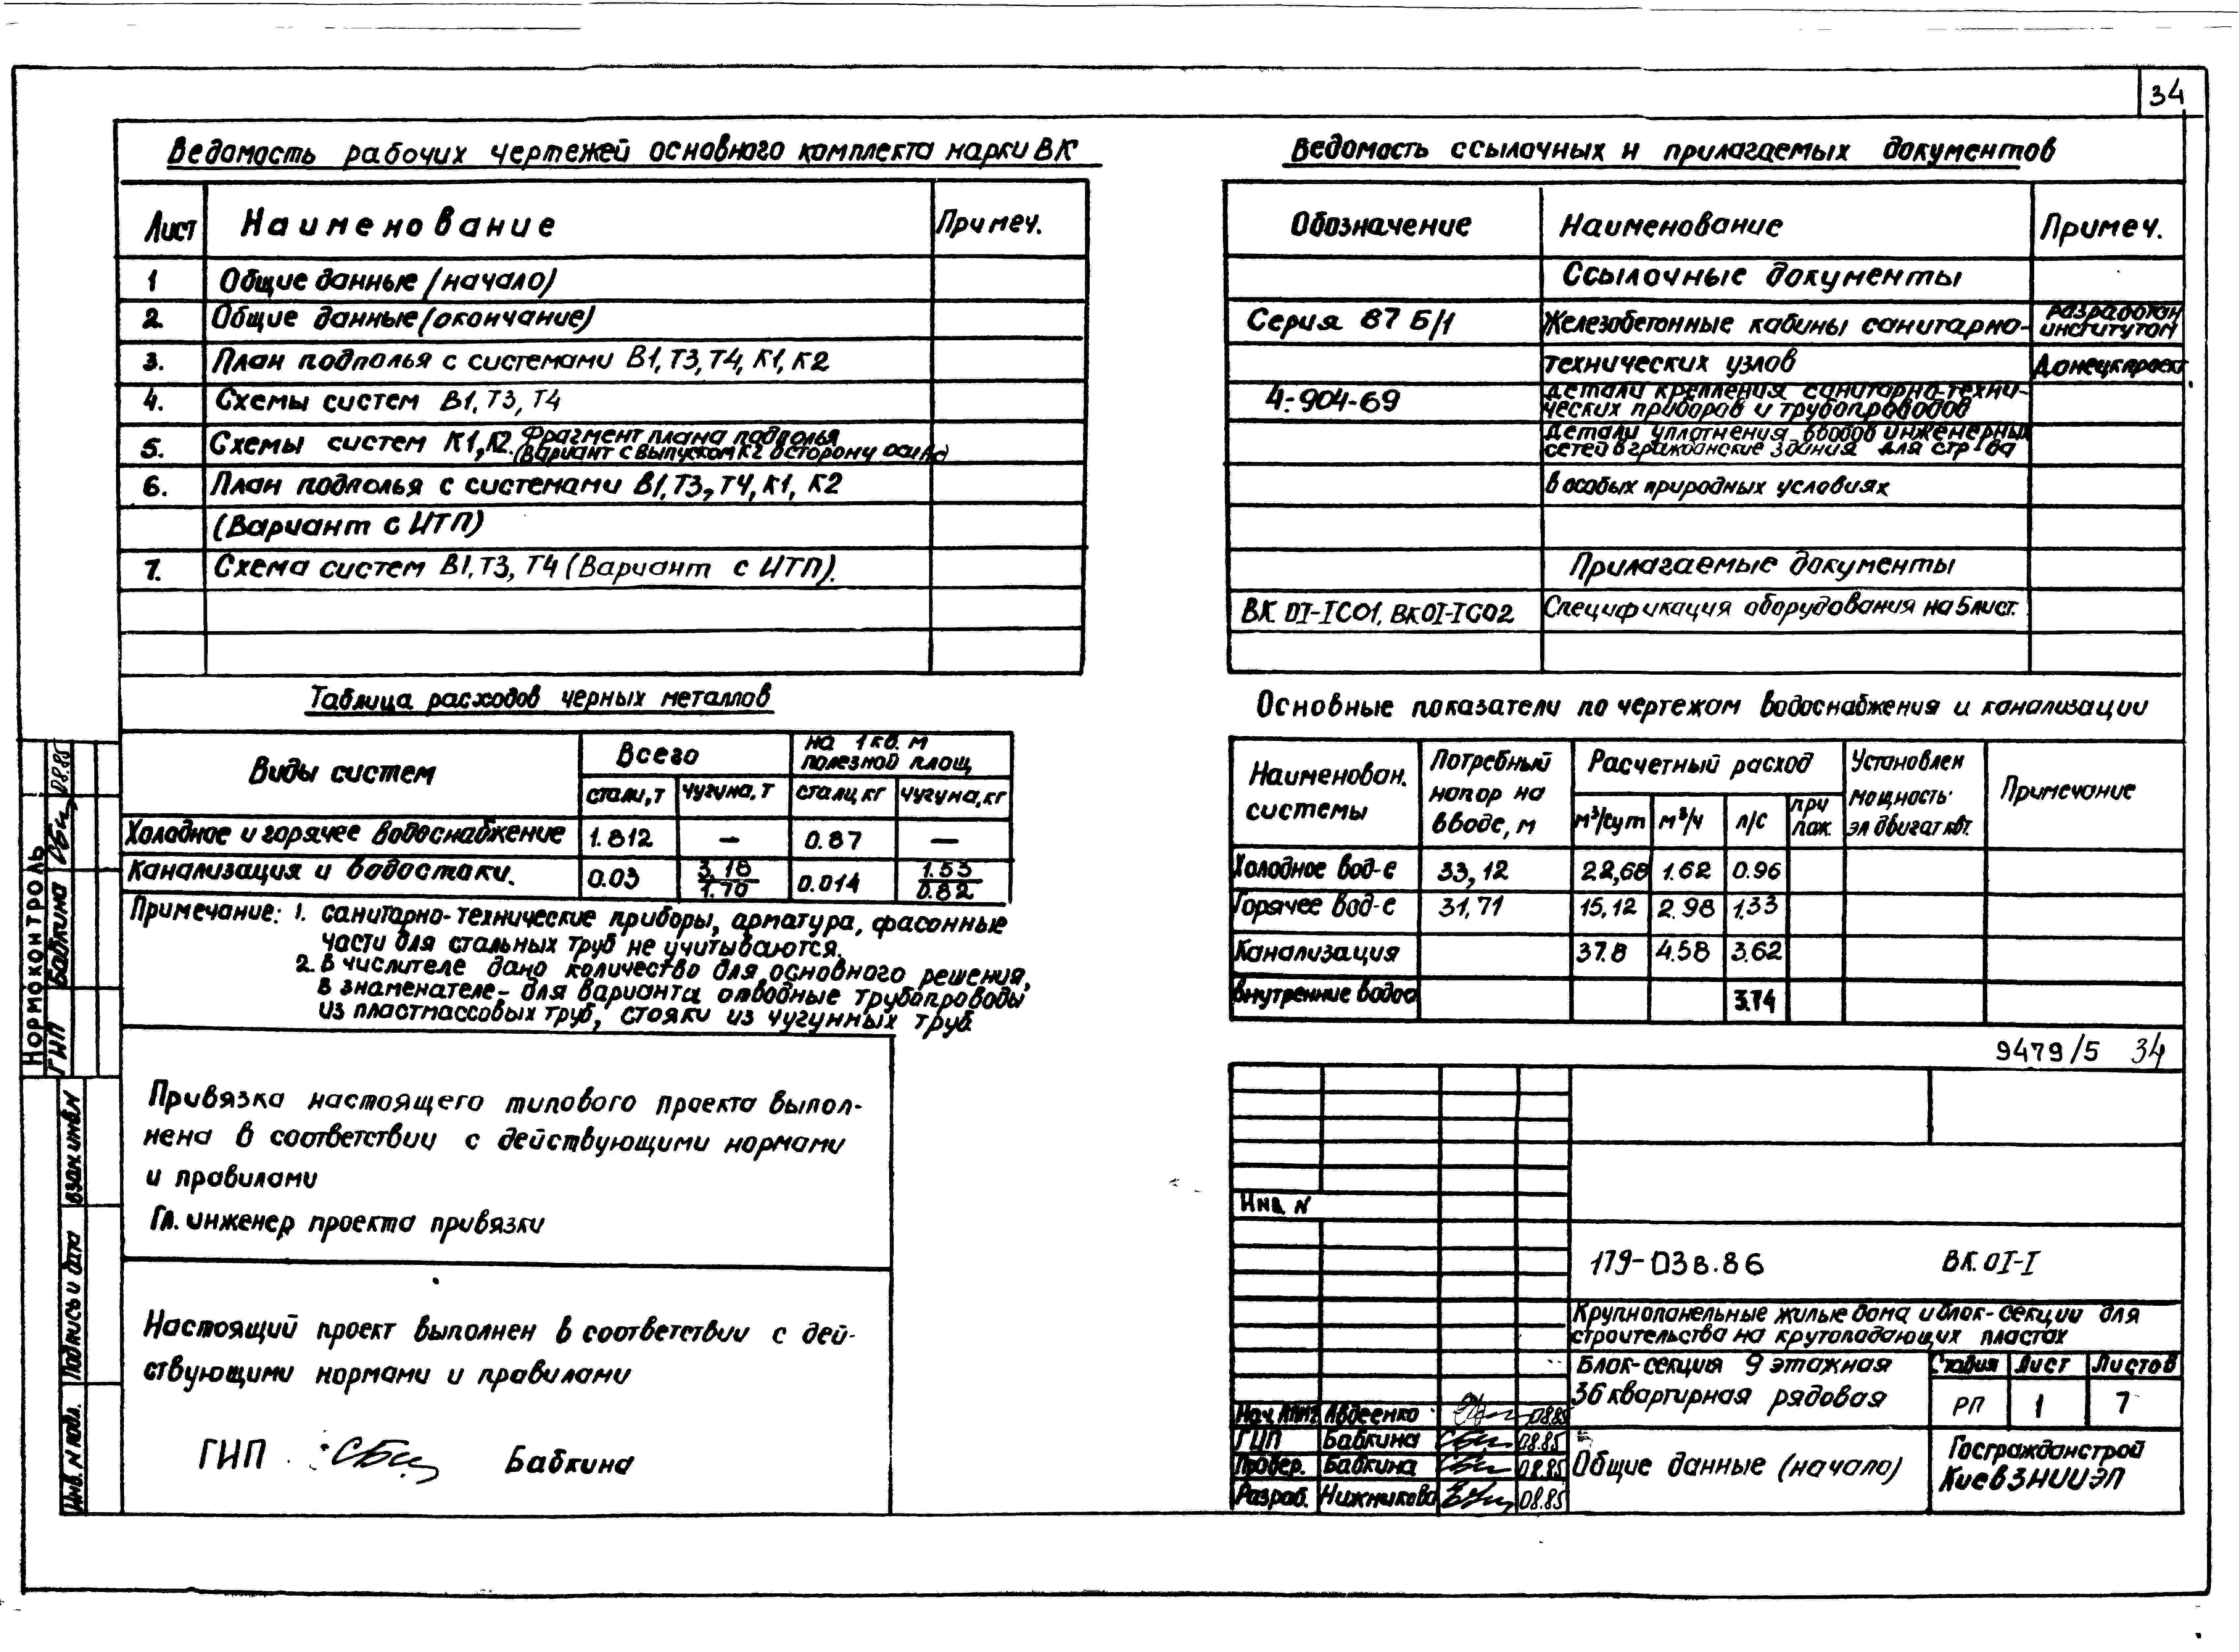 34
Ведомость рабочих чертежей основного комплекта марки ВК
Лист Наименование Примеч.
1 Общие данные (начало)
2 Общие данные (окончание)
3. План подполья с системами В1, Т3, Т4, К1, К2
4. Схемы систем В1, Т3, Т4
5. Схемы систем К1, К2. Фрагмент плана подполья
(вариант с выпуском К2 в сторону оси
6. План подполья с системами В1, Т3, Т4, К1, К2
(Вариант с ИТП)
7. Схема систем В1, Т3, Т4 (Вариант с ИТП).
Ведомость ссылочных и прилагаемых документов
Обозначение Наименование Примеч.
Ссылочные документы
Серия 87 Б/1 Железобетонные кабины санитарно- разработан институтом
технических узлов Донецкпроект
4-904-69 Детали крепления санитарно-техни-
ческих приборов и трубопроводов
Детали уплотнения вводов инженерных
сетей в гражданские здания для стр-ва
в особых природных условиях
Прилагаемые документы
ВК 0I-IC01, ВК0I-IC02 Спецификация оборудования на 5 лист.
Таблица расходов черных металлов
Виды систем Всего на 1 кв. м полезной площ
стали, т чугуна, т стали, кг чугуна, кг
Холодное и горячее водоснабжение 1.812 — 0.87 —
Канализация и водостоки. 0.03 3.18/1.70 0.014 1.53/0.82
Примечание: 1. санитарно-технические приборы, арматура, фасонные
части для стальных труб не учитываются.
2. в числителе дано количество для основного решения,
в знаменателе - для варианта отводные трубопроводы
из пластмассовых труб, стояки из чугунных труб
Основные показатели по чертежам водоснабжения и канализации
Наименован. системы Потребный напор на вводе, м Расчетный расход Установлен мощность эл двигат квт. Примечание
м³/сут м³/ч л/с при пож.
Холодное вод-е 33,12 22,68 1.62 0.96
Горячее вод-е 31,71 15,12 2.98 1.33
Канализация 37.8 4.58 3.62
Внутренние водос 3.74
9479/5 34
Привязка настоящего типового проекта выпол-
нена в соответствии с действующими нормами
и правилами
Гл. инженер проекта привязки
Настоящий проект выполнен в соответствии с дей-
ствующими нормами и правилами
ГИП Бабкина
Нормоконтроль
ГИП Бабкина 08.85
Взам инв N
Подпись и дата
Инв. N подл.
Инв. N
179-03в.86 ВК.0I-I
Крупнопанельные жилые дома и блок-секции для
строительства на крутопадающих пластах
Блок-секция 9 этажная
36 квартирная рядовая
Стадия Лист Листов
РП 1 7
Нач. Авдеенко 08.85
ГИП Бабкина 08.85
Провер. Бабкина 08.85
Разраб. Нижникова 08.85
Общие данные (начало)
Госгражданстрой
КиевЗНИИЭП